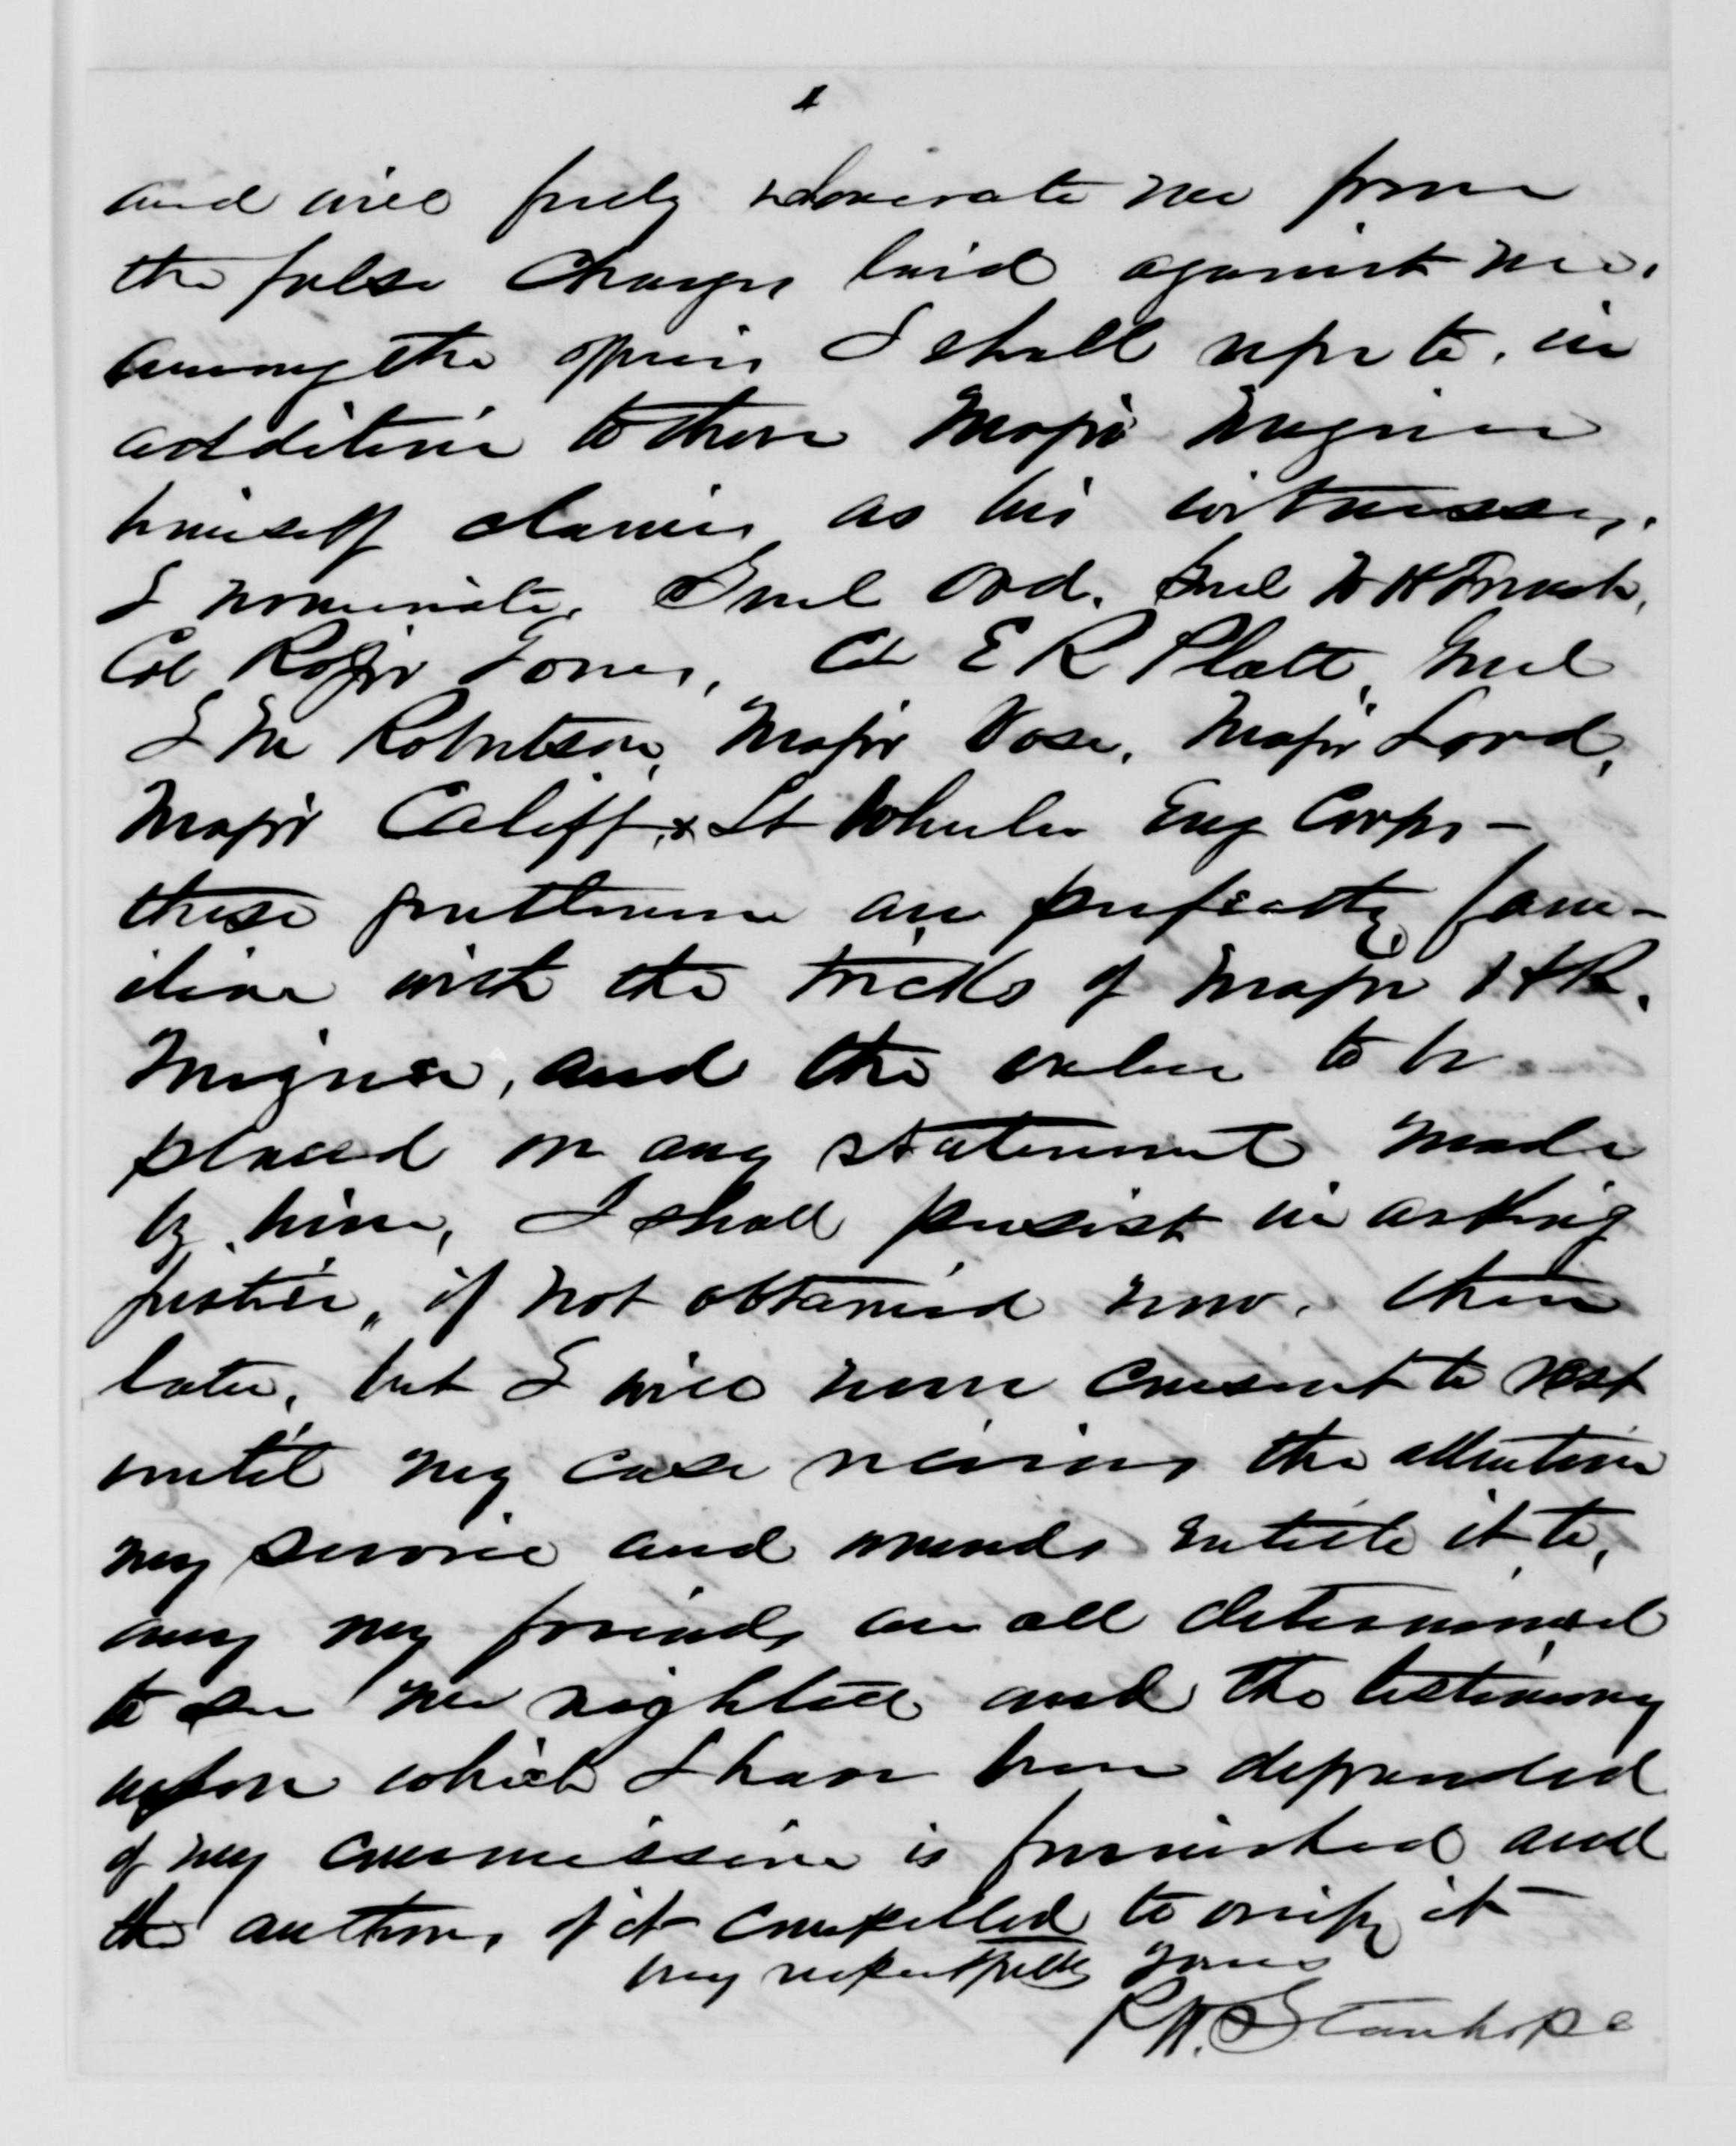 4
and will fully exonerate me from
the false charges laid against me.
among the officers I shall refer to, in
addition to those Major Mizner
himself claims as his witnesses,
I nominate, Genl Ord. Genl W H French,
Col Roger Jones, Col E R Platt, Genl
J M Robertson, Major Vose, Major Lord,
Major Califf, & Lt Wheeler Eng Corps –
these gentlemen are perfectly fam-
iliar with the tricks of Major H R.
Mizner, and the value to be
placed on any statement made
by him, I shall persist in asking
justice, if not obtained now, then
later, but I will never consent to rest
until my case receives the attention
my service and wounds entitle it to,
my friends are all determined
to see me righted and the testimony
upon which I have been deprived
of my commission is furnished and
the authors of it compelled to verify it
very respectfully yours
R W. Stanhope